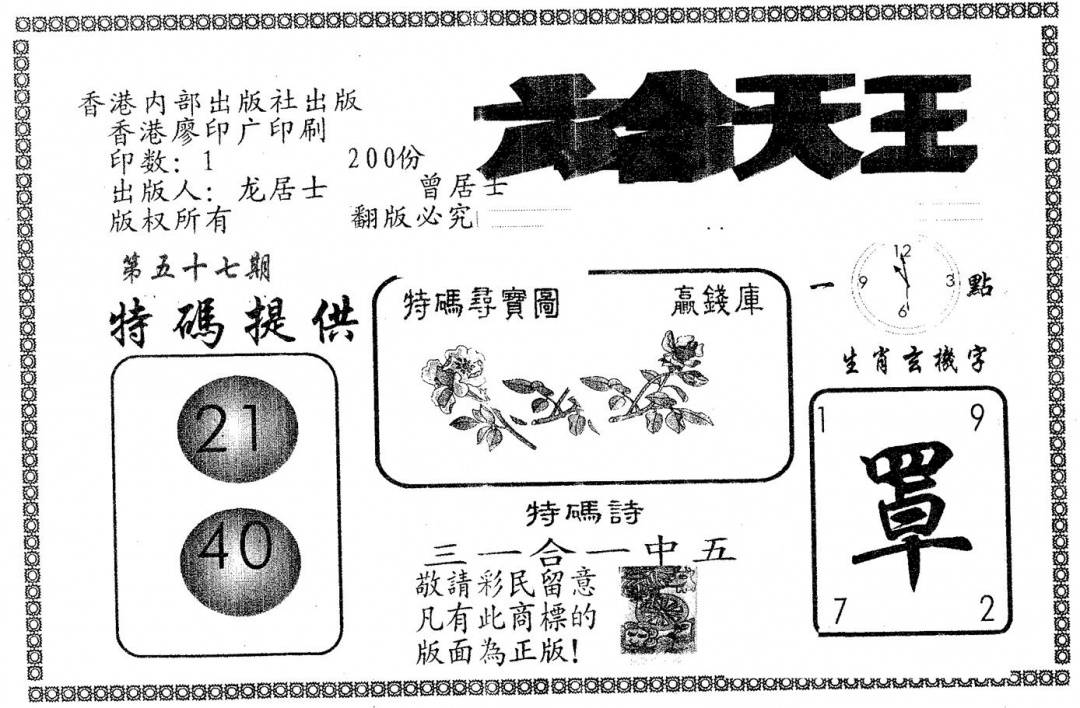 六合天王
香港内部出版社出版
香港廖印广印刷
印数：1 200份
出版人：龙居士 曾居士
版权所有 翻版必究
第五十七期
特碼提供
21
40
特碼尋寶圖 贏錢庫
一 點
12
9 3
6
生肖玄機字
1 9
罩
7 2
特碼詩
三一合一中五
敬請彩民留意
凡有此商標的
版面為正版!